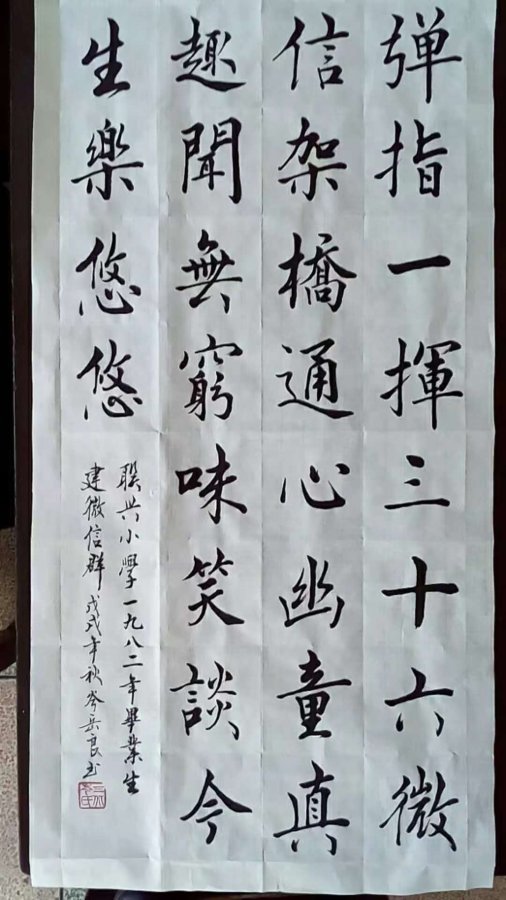 弹指一揮三十六微
信架橋通心幽童真
趣聞無窮味笑談今
生樂悠悠
联兴小學一九八二年畢業生
建微信群戊戌年秋岑岳良书